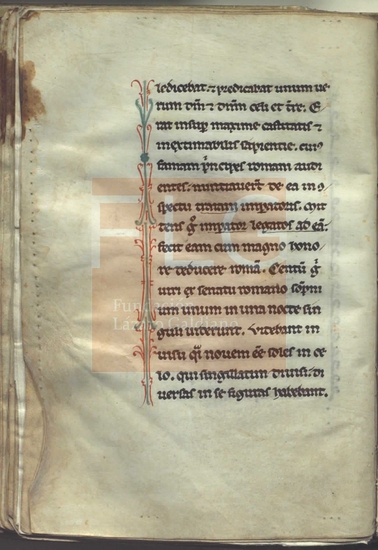 iedicebat ⁊ predicabat unum ue
rum dm̄ ⁊ dnm̄ celi et tr̄e. E
rat insup maxime castitatis ⁊
inextimabilis sapientie. cuius
famam pͥncipes romani audi
entes. nuntiauert̄ de ea in ͻ
spectu traiani impatoris. ont
tens gͦ impator legatos ad eā
fecit eam cum magno hono
re reducere romā. Centū gͦ
uiri ex senatu romano sompni
um unum in una nocte sin
guli uiderunt. Videbant in
uisu qͣi nouem ēe soles in ce
lo. qui singillatim diuisi. di
uersas in se figuras habebant.
FLG
Fundación
Lázaro Galdiano